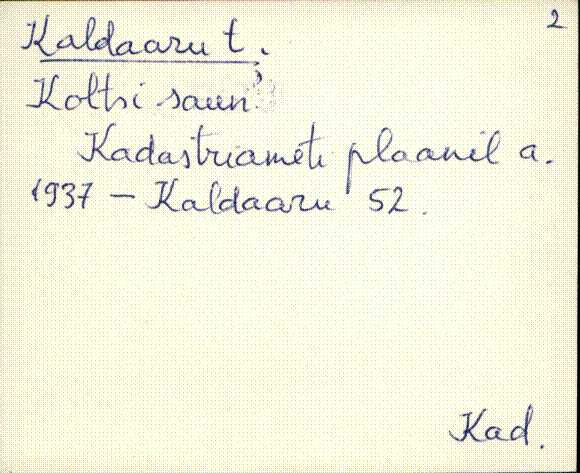 2
Kaldaaru t.
Koltsi saun?
Kadastriameti plaanil a.
1937 – Kaldaaru 52.
Kad.